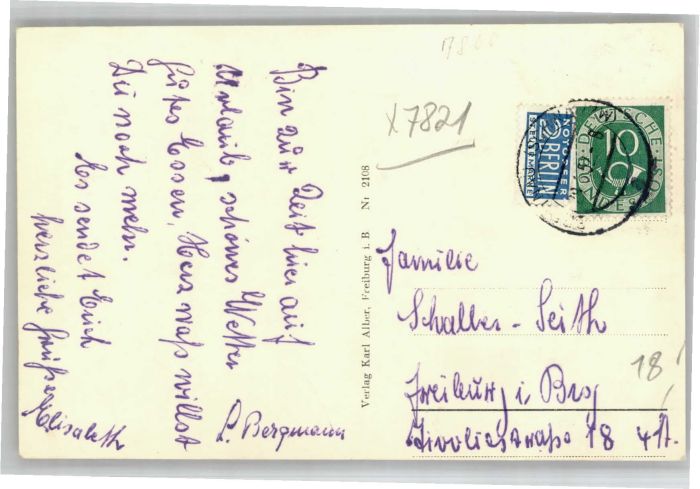 Bin zur Zeit hier auf
Urlaub, schönes Wetter
gutes Essen, Herz was willst
Du noch mehr.
Es sendet Euch
herzliche Grüße
Elisabeth
L. Bergmann
Verlag Karl Alber, Freiburg i. B Nr 2108
17800
X7821
NOTOPFER
2 BERLIN
STEUERMARKE
DEUTSCHE POST
10
BUNDESPOST
Familie
Schalber - Seith
Freiburg i. Brsg
Tivolistraße 18 4 St.
18